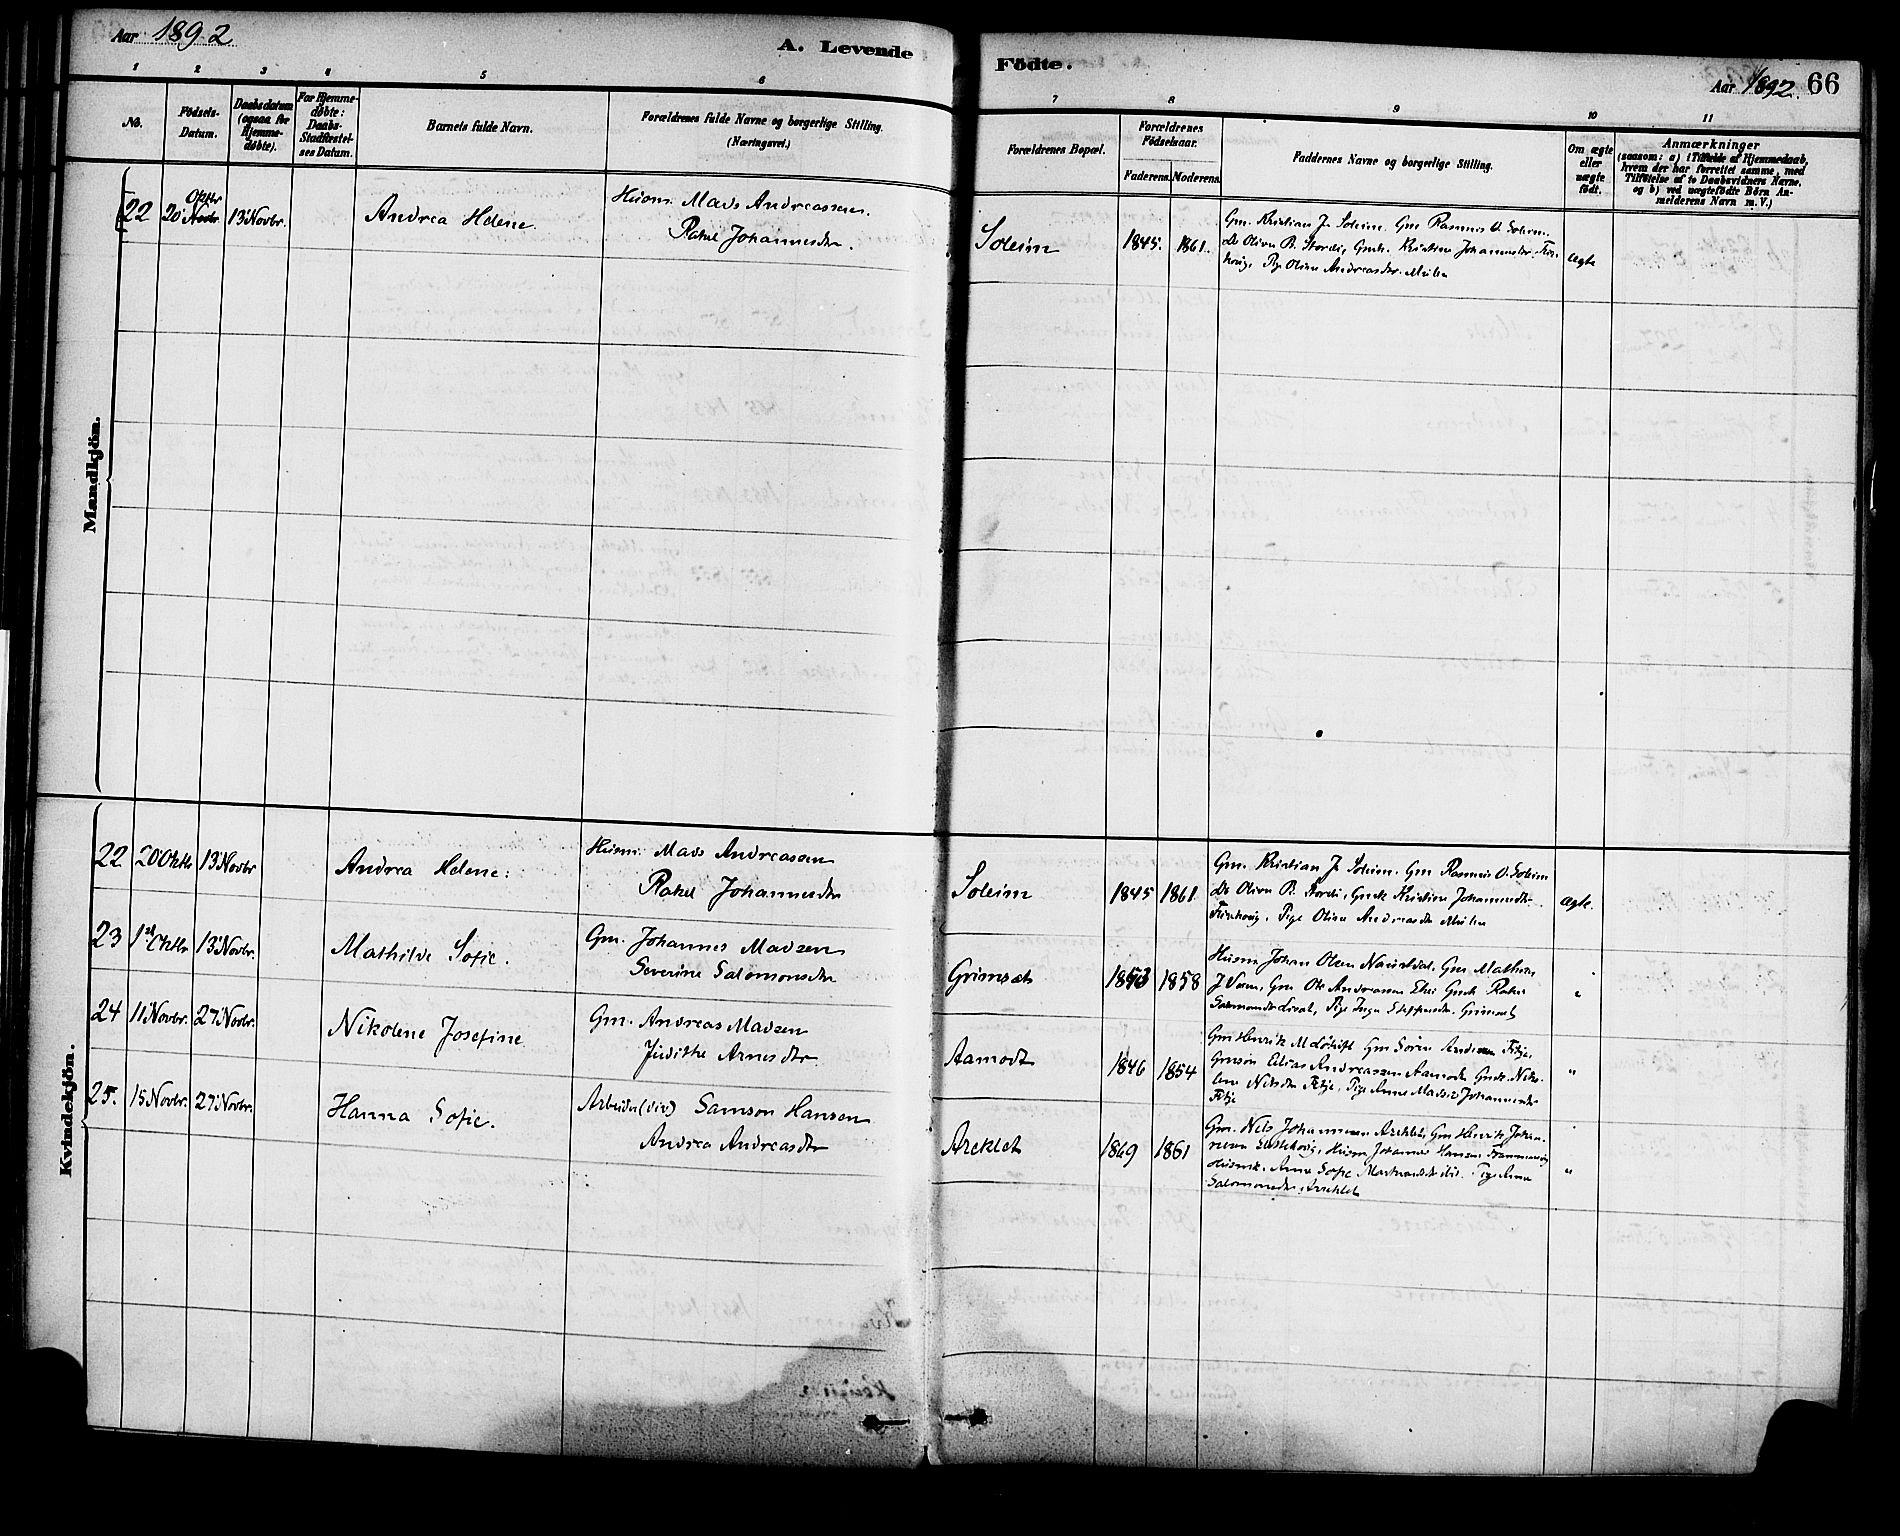 Aar 1892
A. Levende
Födte.
Aar 1892. 66
1 2 3 4 5 6
7 8 9 10 11
No.
Födsels-
Datum.
Daabsdatum
(ogsaa for
Hjemme-
døbte).
For Hjemme-
døbte:
Daabs-
Stadfæstel-
ses Datum.
Barnets fulde Navn.
Forældrenes fulde Navne og borgerlige Stilling.
(Næringsvei.)
Forældrenes Bopæl.
Forældrenes
Födselsaar.
Faderens. Moderens.
Faddernes Navne og borgerlige Stilling.
Om ægte
eller
uægte
födt.
Anmærkninger
(saasom: a) i Tilfælde af Hjemmedaab,
hvem der har forrettet samme, med
Tilföielse af to Daabsvidners Navne,
og b) ved uægtefödte Börn An-
melderens Navn m. V.)
Mandkjön.
Oktbr
22 20 Novbr 13 Novbr. Andrea Helene. Husm. Mads Andreassen.
Rakel Johannesdtr.
Soleim 1845. 1861. Gm. Kristian J. Soleim. Gm Rasmus O. Soleim.
Do Olivu R. Stordi, Gmk. Kristine Johannesdtr.
Pige Oline Andreasdtr. ægte
Kvindekjön.
22 20 Oktb 13 Novbr Andrea Helene: Husm. Mads Andreassen
Rakel Johannesdtr
Soleim 1845 1861 Gm. Kristian J. Soleim. Gm Rasmus O. Soleim
Do Olivu R. Stordi, Gmk Kristine Johannesdtr.
Pige Oline Andreasdtr ægte.
23 1st Oktbr 13 Novbr. Mathilde Sofie. Gm. Johannes Madsen
Severine Salomonsdtr
Grimsæt 1853 1858 Husm Johan Olsen Naustdal, Gm Mathias
J Gm Ole Andreassen Gmk Rakel
Salomonsdtr Pige Inga Grimsæt "
24 11 Novbr. 27 Novbr. Nikolene Josefine Gm. Andreas Madsen
Judithe Arnesdtr
Aamodt 1846 1854 Gm Henrik M Gm Sören Fitje,
Gmsön Elias Andreassen Aamodt Gmk. Niko-
line Nilsdtr Fitje, Pige Anne Johannesdtr
Fitje "
25. 15 Novbr. 27 Novbr. Hanna Sofie. Arbeider (div) Samson Hansen
Andrea Andreasdtr
Areklet 1869 1861 Gm. Nils Johannessen Areklet, Gm Henrik Johan-
nessen Husm Johannes Hansen
Husmk. Anne Sofie Pige Anna
Salomonsdtr, Areklet "